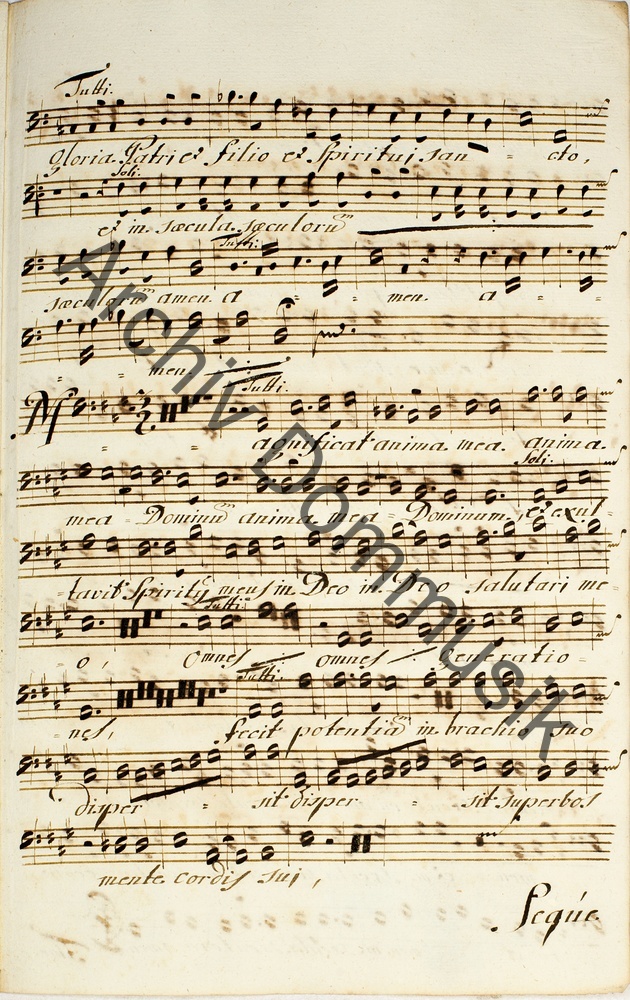 Tutti.
Gloria Patri et filio et Spiritui san = cto,
Soli.
et in sæcula sæculorũm
Tutti.
sæculorũm amen. a = = men. a = =
= = men.
Tutti.
M = = agnificat anima mea. anima
Soli.
mea = Dominũm anima mea = Dominum, et exul-
-tavit Spiritũ meus in Deo in Deo salutari me-
Tutti.
= o, omnes omnes Generatio =
Tutti.
= nes, fecit potentiãm in brachio suo
disper = sit disper = sit superbos
mente cordis sui,
Seqúe.
Archiv Dommusik